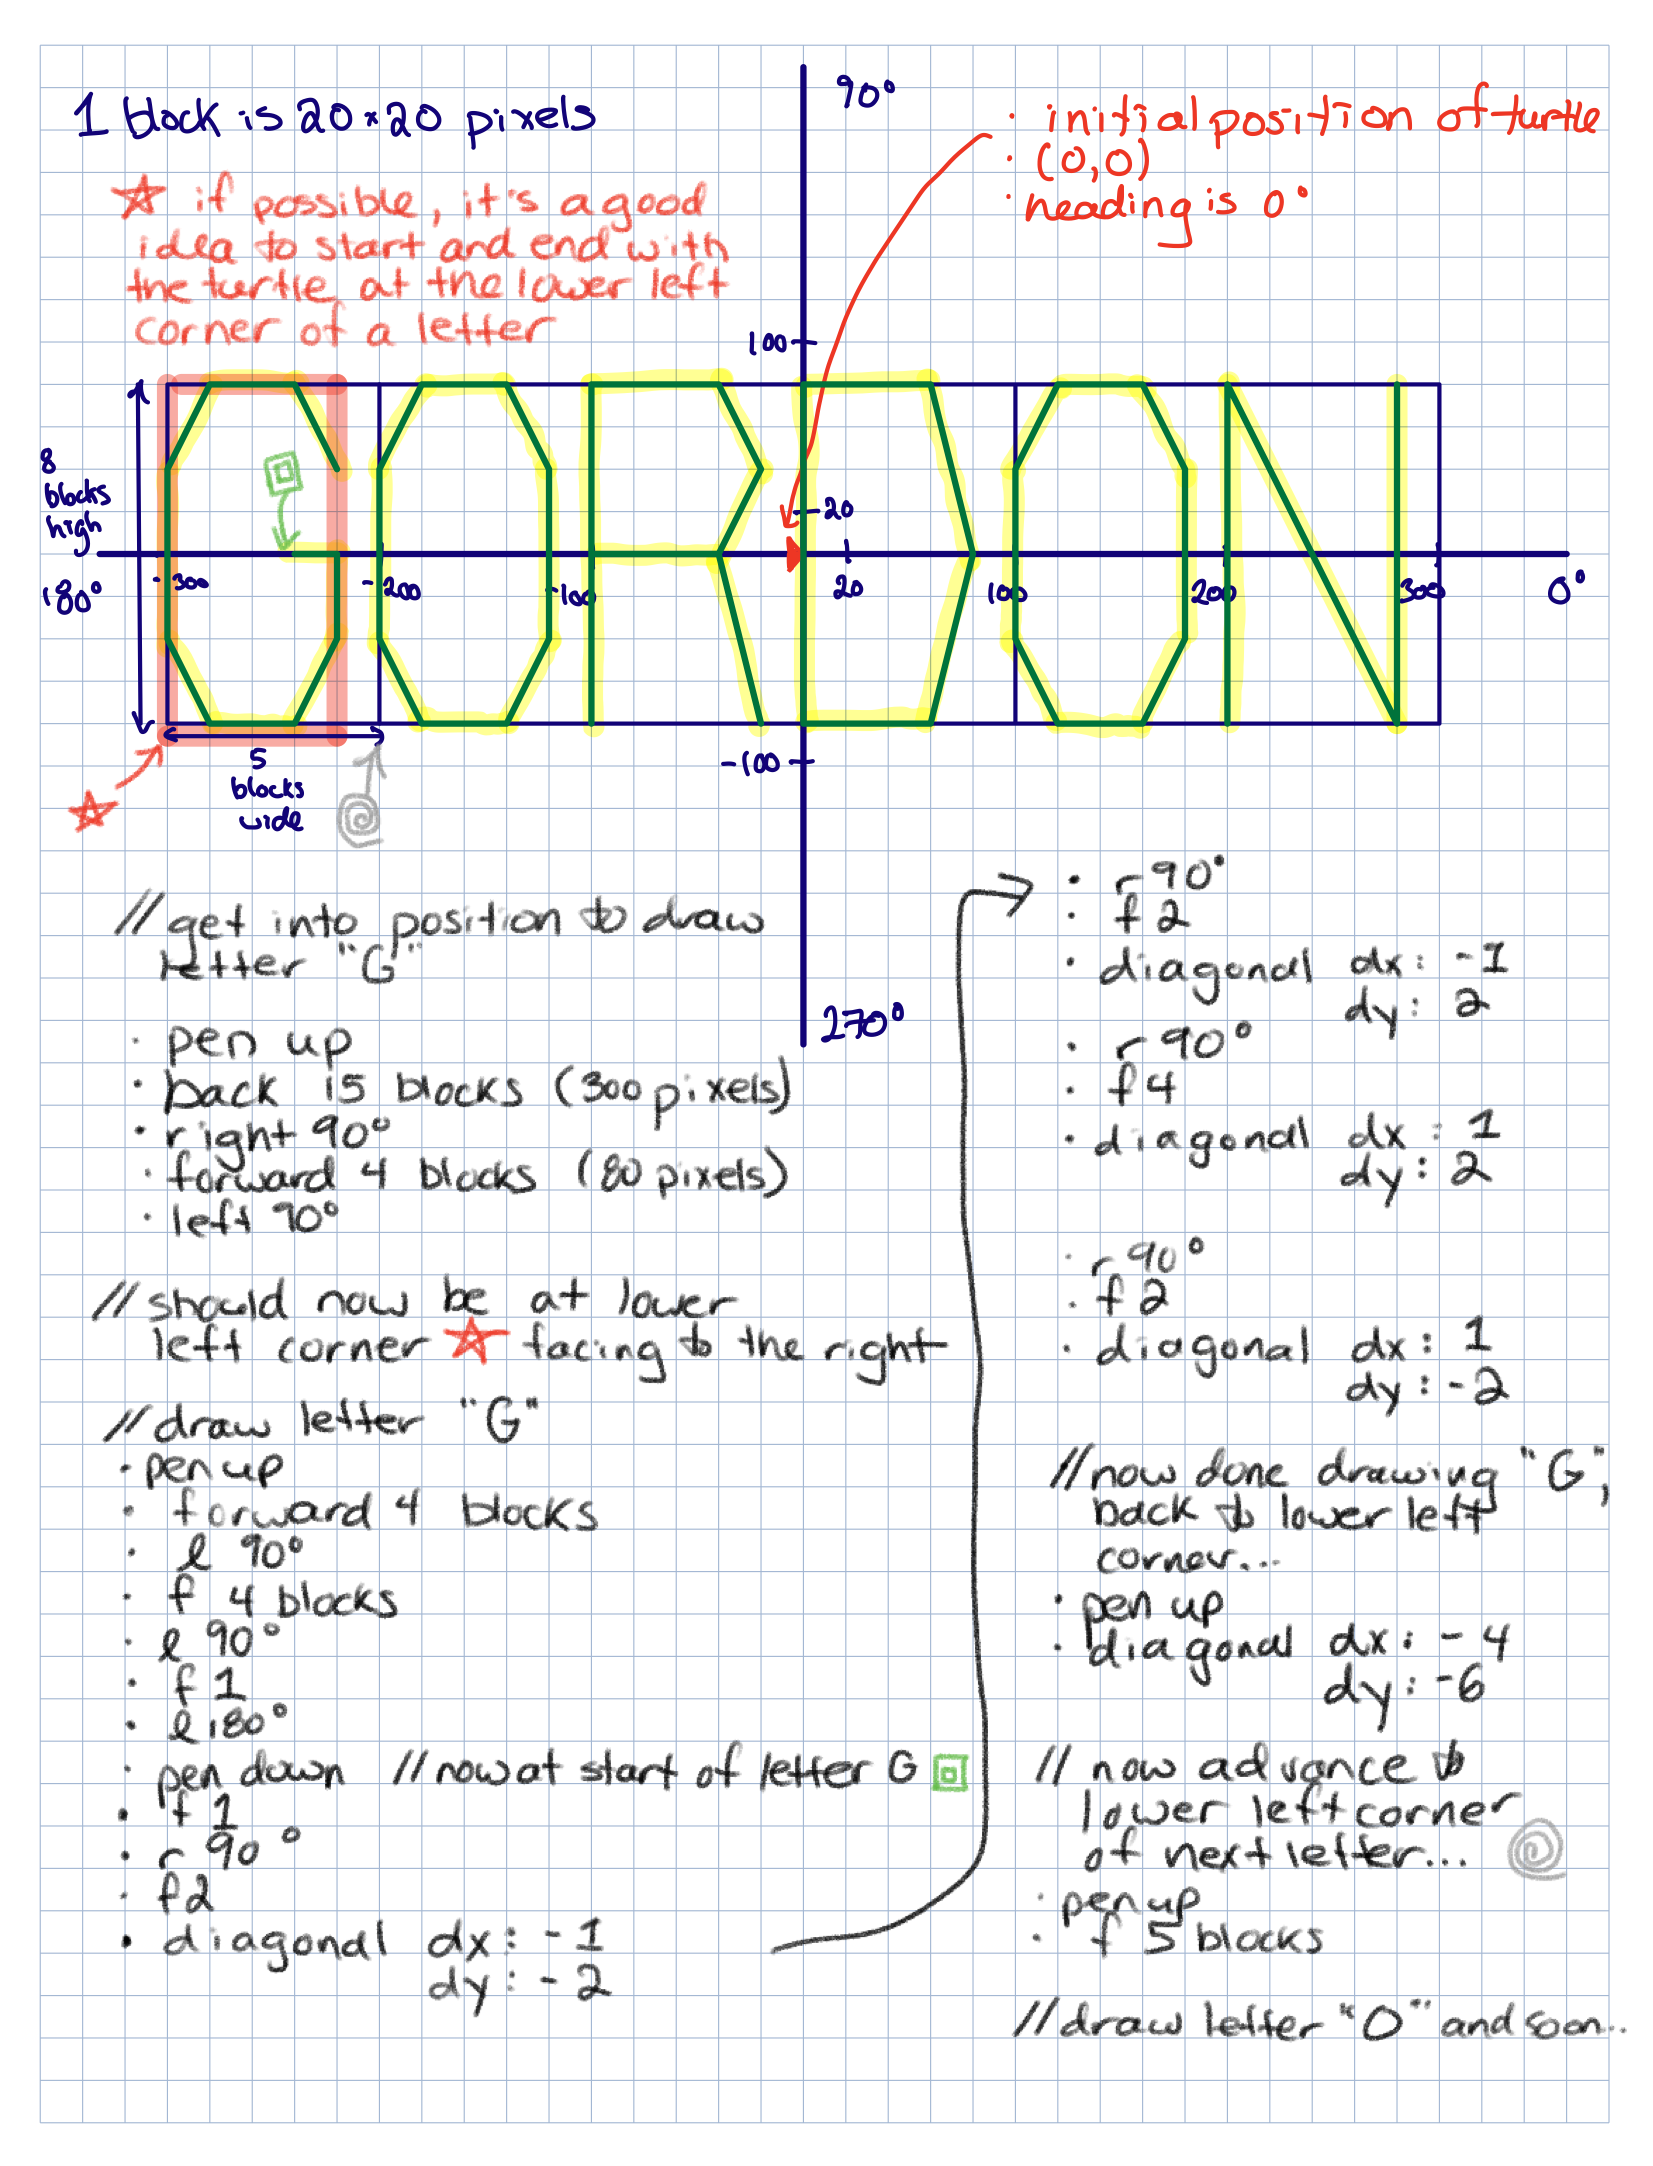 1 block is 20×20 pixels
90°
· initial position of turtle
· (0,0)
· heading is 0°
☆ if possible, it's a good
idea to start and end with
the turtle at the lower left
corner of a letter
100
8
blocks
high
20
180°
-300
-200
-100
20
100
200
300
0°
GORDON
-100
5
blocks
wide
270°
// get into position to draw
letter "G"
· pen up
· back 15 blocks (300 pixels)
· right 90°
· forward 4 blocks (80 pixels)
· left 90°
// should now be at lower
left corner ☆ facing to the right
// draw letter "G"
· pen up
· forward 4 blocks
· l 90°
· f 4 blocks
· l 90°
· f 1
· l 180°
· pen down // now at start of letter G
· f 1
· r 90°
· f2
· diagonal dx: -1
dy: -2
· r 90°
· f 2
· diagonal dx: -1
dy: 2
· r 90°
· f 4
· diagonal dx: 1
dy: 2
· r 90°
· f 2
· diagonal dx: 1
dy: -2
// now done drawing "G",
back to lower left
corner...
· pen up
· diagonal dx: -4
dy: -6
// now advance to
lower left corner
of next letter...
· pen up
· f 5 blocks
// draw letter "O" and soon...